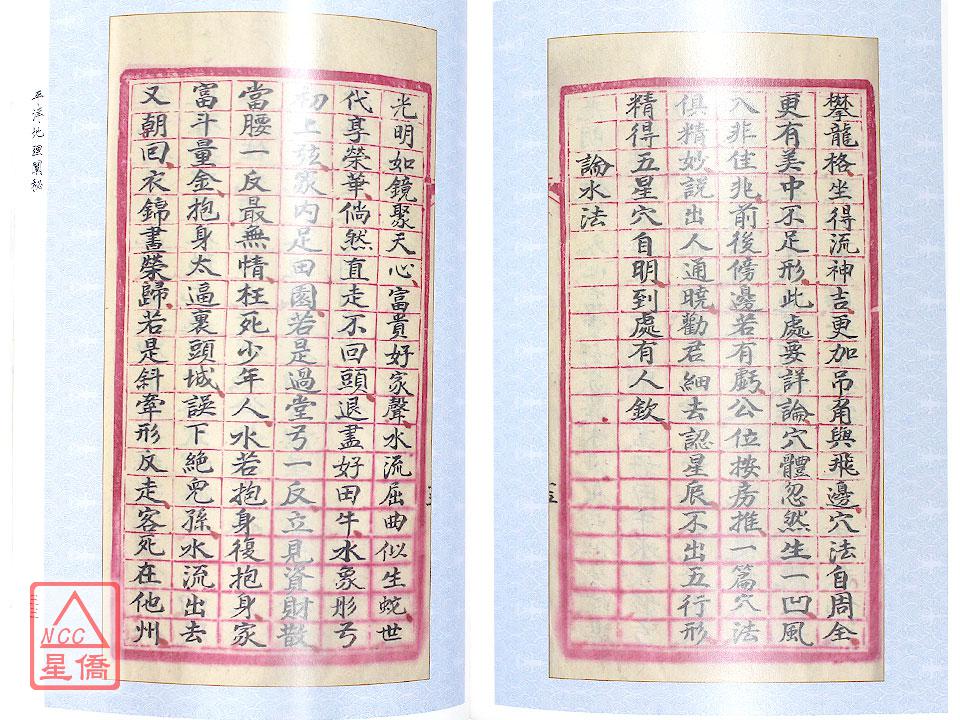 攀龍格坐得流神吉更加吊角與飛邊穴法自周全
更有美中不足形此處要詳論穴體忽然生一凹風
入非佳兆前後傍邊若有虧公位按房推一篇穴法
俱精妙說出人通曉勸君細去認星辰不出五行形
精得五星穴自明到處有人欽
論水法
光明如鏡聚天心富貴好家聲水流屈曲似生蛇世
代享榮華倘然直走不回頭退盡好田牛水象形弓
初上弦家內足田園若是過堂弓一反立見資財散
當腰一反最無情枉死少年人水若抱身復抱身家
富斗量金抱身太逼裹頭城誤下絕兒孫水流出去
又朝回衣錦晝榮歸若是斜牽形反走客死在他州
地理
NCC
星僑